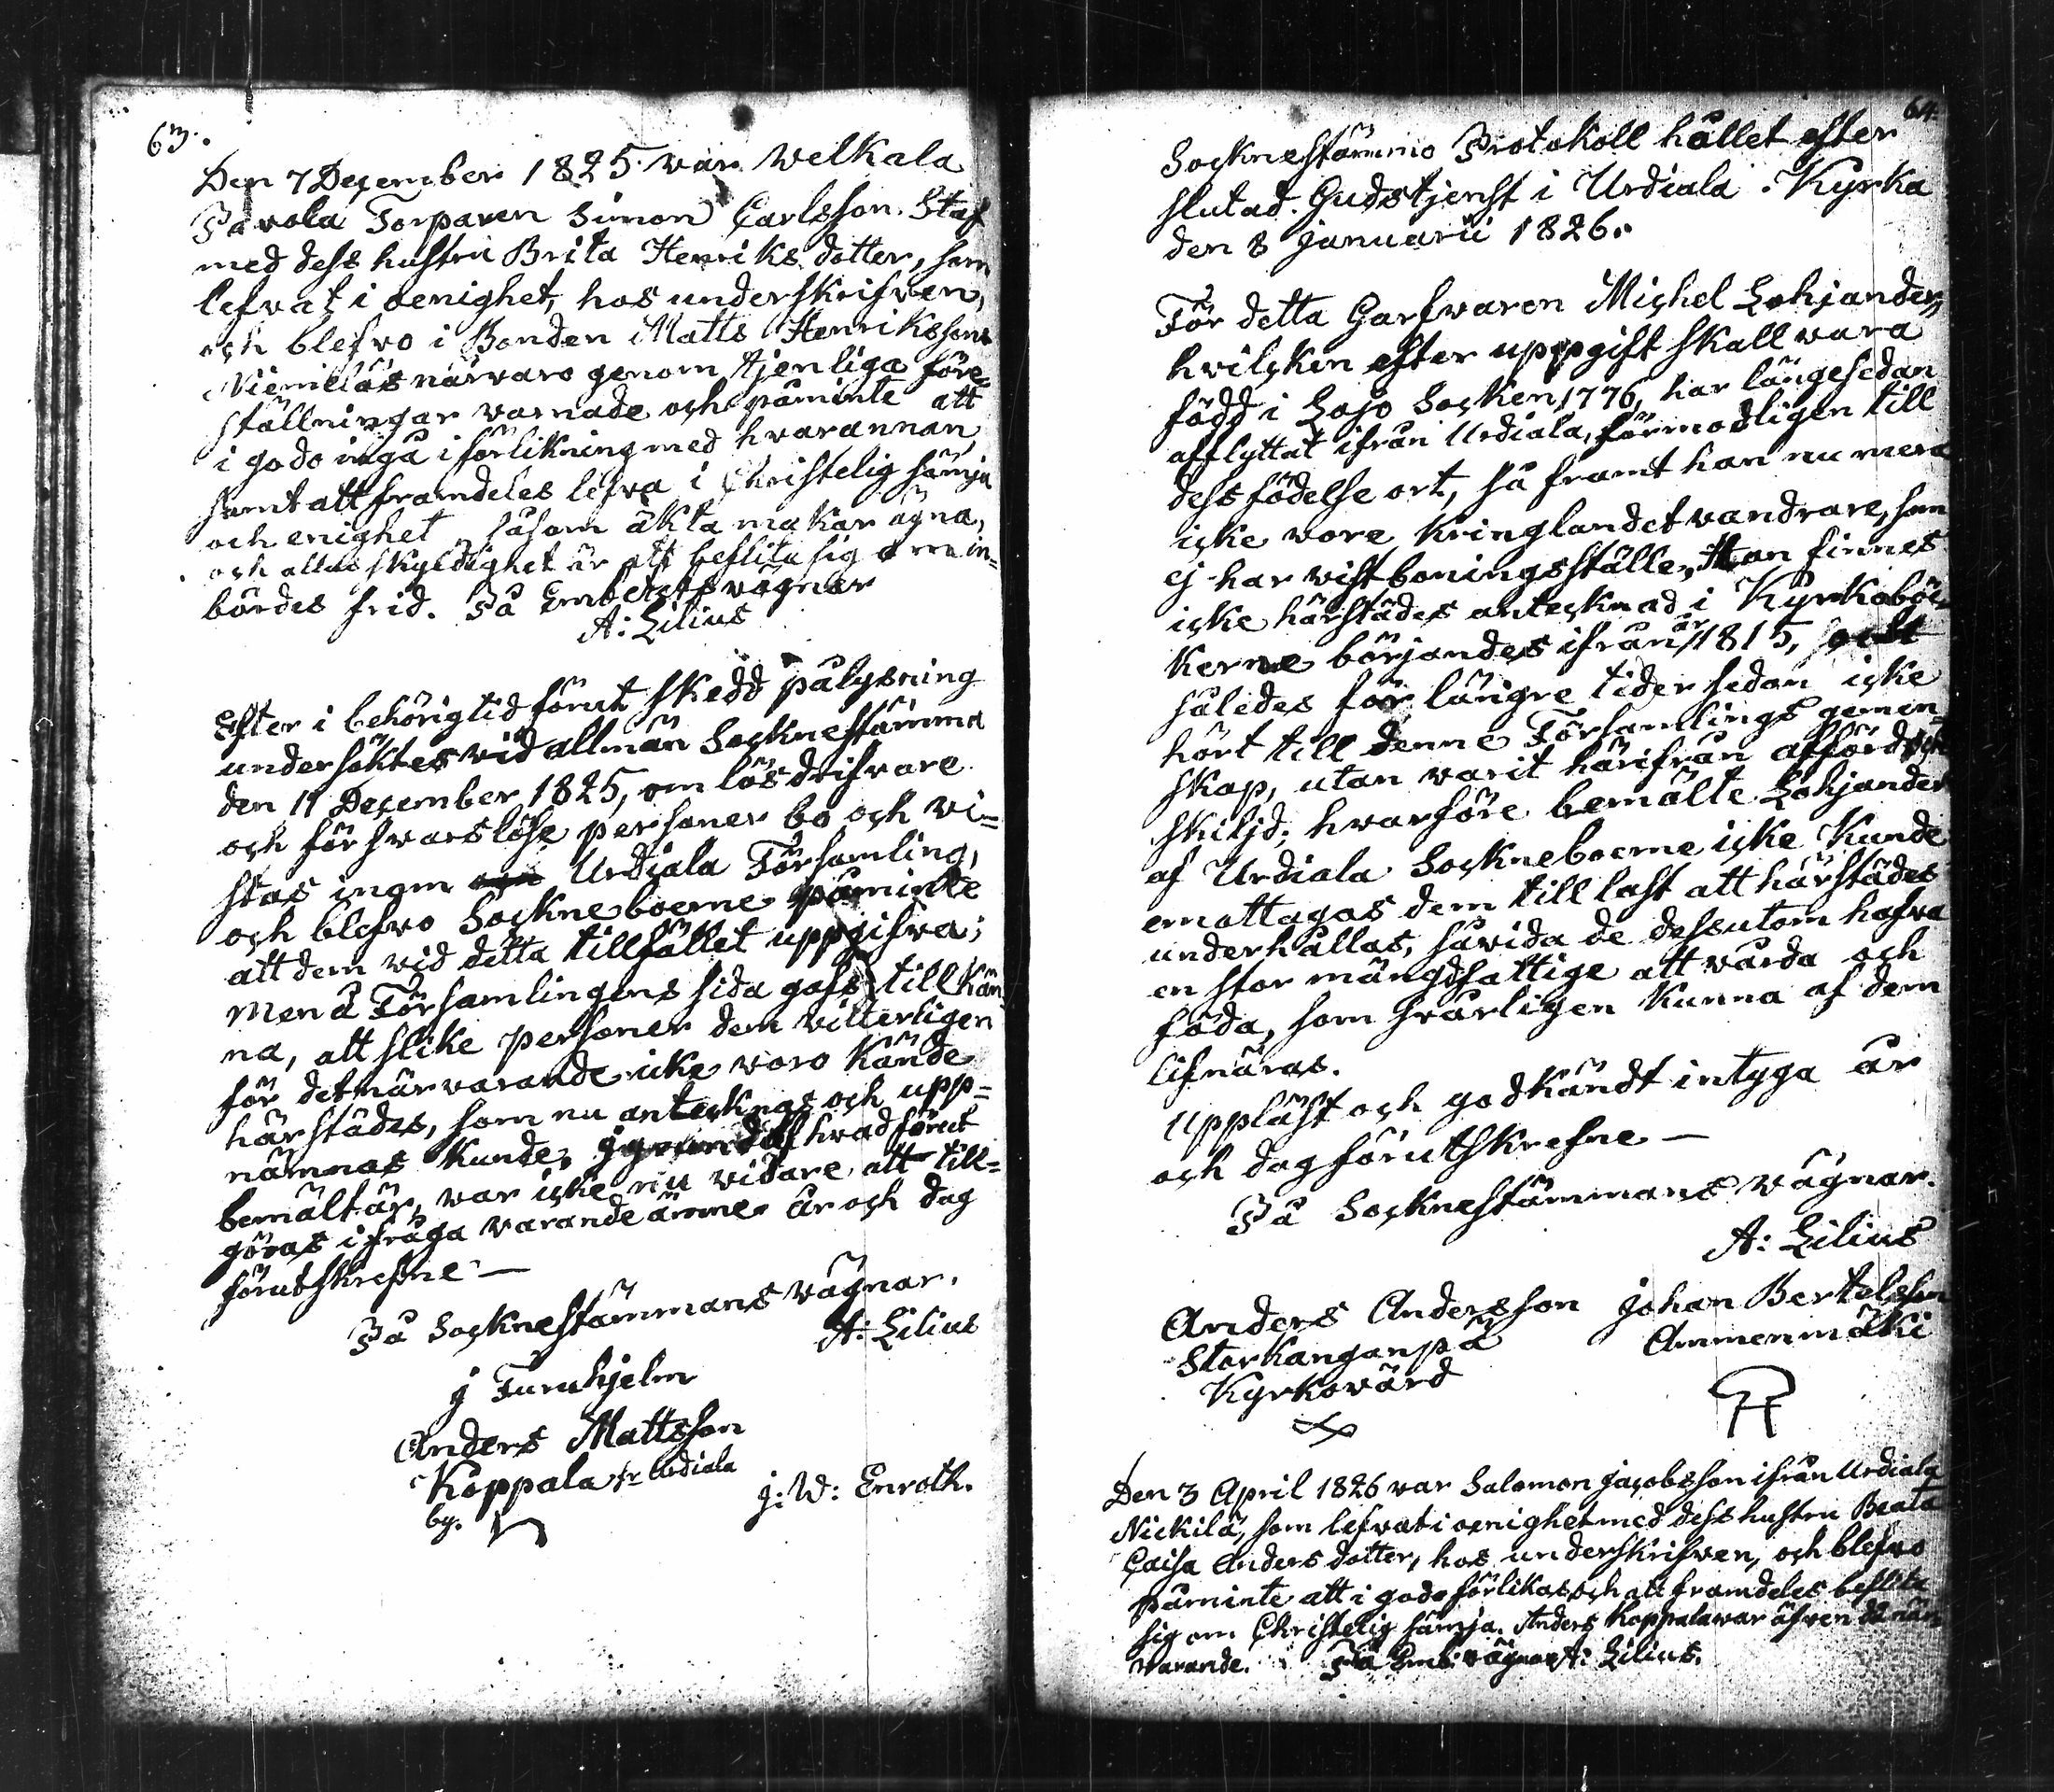 63.
Den 7 December 1825 var Welkala
Pavola Torparen Simon Carlsson Staf
med dess hustru Brita Henriks dotter, som
lefvat i oenighet, hos underskrifven,
och blefvo i Bonden Matts Henrikssons
Niemiläs närvaro genom tjenliga före-
ställningar varnade och påminte att
i godo ingå i förlikning med hvarannan,
samt att framdeles lefva i Christelig sämja
och enighet såsom äkta makar ägna,
och allas skyldighet är att beflita sig om in-
bördes frid. På Embetets vägnar
A: Lilius
Efter i behörig tid förut skedd pålysning
undersöktes vid allmän Socknestämma
den 11 December 1825, om lösdrifvare
och försvarslöse personer bo och vi-
stas inom Urdiala Församling,
och blefvo Sockneboerne påminte
att dem vid detta tillfället uppgifva;
men å Församlingens sida gafs tillkän-
na, att slike personer dem vitterligen
för det närvarande icke voro kände
härstädes, som nu antecknas och upp-
nämnas kunde, i grund af hvad förut
bemält är, var icke nu vidare att till-
göras i fråga varande ämne. År och dag
förutskrefne —
På Socknestämmans vägnar.
A: Lilius
J Furuhjelm
Anders Mattsson
Koppala fr Urdiala
by.
J: W: Enroth.
64.
Sockнestämmo Protokoll hållet efter
slutad Gudstjenst i Urdiala Kyrka
den 8 Januarii 1826.
För detta Garfvaren Michel Lohjander,
hvilcken efter uppgift skall vara
född i Lojo Socken 1776, har längesedan
afflyttat ifrån Urdiala, förmodligen till
dess födelse ort, så framt han nu mera
icke vore kringlandet vandrare, som
ej har vist boningsställe, Han finnes
icke härstädes antecknad i Kyrkoböc-
kerne börjandes ifrån år 1815, och
således för längre tider sedan icke
hört till denne Församlings gemen-
skap, utan varit härifrån afförd och
skiljd; hvarföre bemälte Lohjander
af Urdiala Sockneboerne icke kunde
emottagas dem till last att härstädes
underhållas, såvida de dessutom hafva
en stor mängd fattige att vårda och
föda, som svårligen kunna af dem
lifnäras.
Uppläst och godkändt intyga år
och dag förutskrefne —
På Socknestämmans vägnar.
A: Lilius
Anders Andersson Johan Bertelsson
Storkanganpä Ammenmäki
Kyrkovärd
Den 3 April 1826 var Salomon Jacobsson ifrån Urdiala
Nickilä, som lefvat i oenighet med dess hustru Beata
Caisa Anders dotter, hos underskrifven, och blefvo
påminte att i godo förlikas och att framdeles beflita
sig om Christelig sämja. Anders Koppala var äfven då när-
varande. På Emb: vägnar A: Lilius.